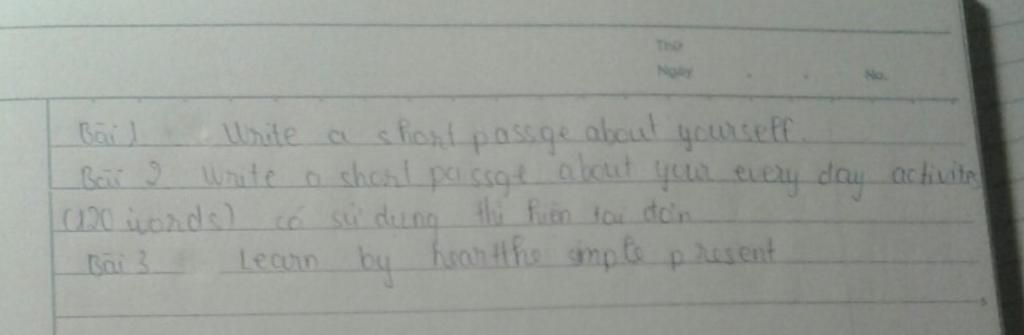 Thứ
Ngày . . No.
Bài 1 Write a short passge about yourself.
Bài 2 Write a short passge about your every day activities
(120 words) có sử dụng thì hiện tại đơn
Bài 3 Learn by heartthe simple present